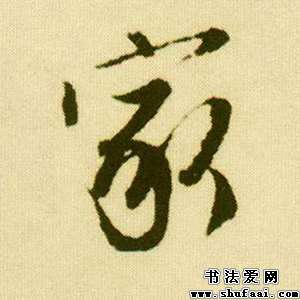 家
书法爱网
www.shufaai.com